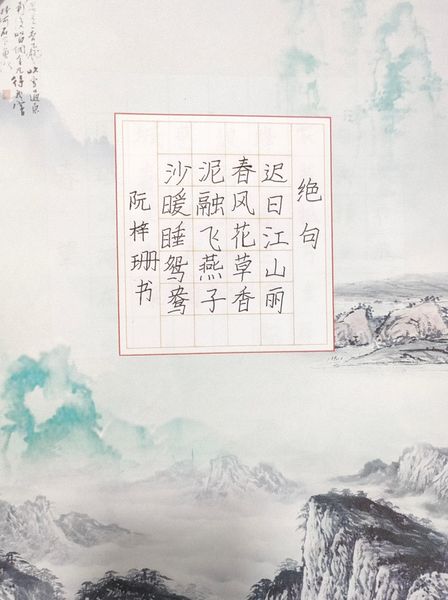 绝句
迟日江山丽
春风花草香
泥融飞燕子
沙暖睡鸳鸯
阮梓珊书